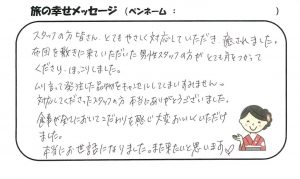 旅の幸せメッセージ（ペンネーム：　　　　　）
スタッフの方皆さん、とてもやさしく対応していただき、癒されました。
布団を敷きに来ていただいた男性スタッフの方がとても気をつかって
くださり、ほっこりしました。
ムリ言って発注した品物をキャンセルしてしまいすみません。
対応してくださったスタッフの方 本当にありがとうございました。
食事や器などにおいてこだわりを感じ大変おいしくいただけ
ました。
本当にお世話になりました。また来たいと思います♡